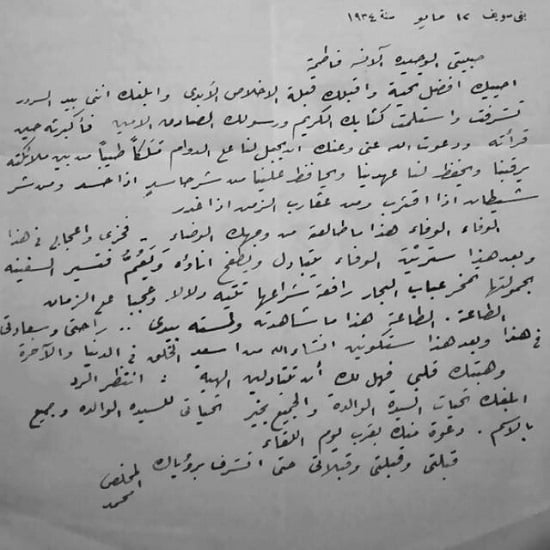 بنى سويف ١٢ مايو سنة ١٩٣٤
حبيبتى الوحيده الآنسه فاطمة
احييك افضل تحية واقبلك قبلة الاخلاص الأبدى وابلغك اننى بيد السرور
تشرفت واستلمت كتابك الكريم ورسولك الصادق الامين فأكبرته حين
قرأته ودعوت الله عنى وعنك ان يجعل لنا على الدوام مَلَكاً طيباً من بين ملائكته
يرقبنا ويحفظ لنا عهدنا ويحافظ علينا من شر حاسد اذا حسد ومن شر
شيطان اذا اقترب ومن عقارب الزمن اذا غدر
الوفاء الوفاء هذا ما طالعته من وجهك الوضاء .. فخرى واعجابى فى هذا
وبعد هذا ستربية الوفاء يتبادل ويطفح اناؤه ويَعُمُّ فتسير السفينه
بحمولتها تمخر عباب البحار رافعة شراعها تتيه دلالا وعجبا على الزمان
الطاعة . الطاعة هذا ما شاهدته ولمسته بيدى .. راحتى وسعادتى
فى هذا وبعد هذا ستكونين انشاء الله من اسعد الخلق فى الدنيا والآخرة
وهبتك قلبى فهل لك أن تتبادلين الهبة : انتظر الرد
ابلغك تحيات السيدة الوالدة والجميع بخير تحياتى للسيده الوالده وجميع
بالاسم . دعوة منك بقرب يوم اللقاء
قبلتى وقبلتى وقبلاتى حتى اتشرف برؤياك المخلص
محمد